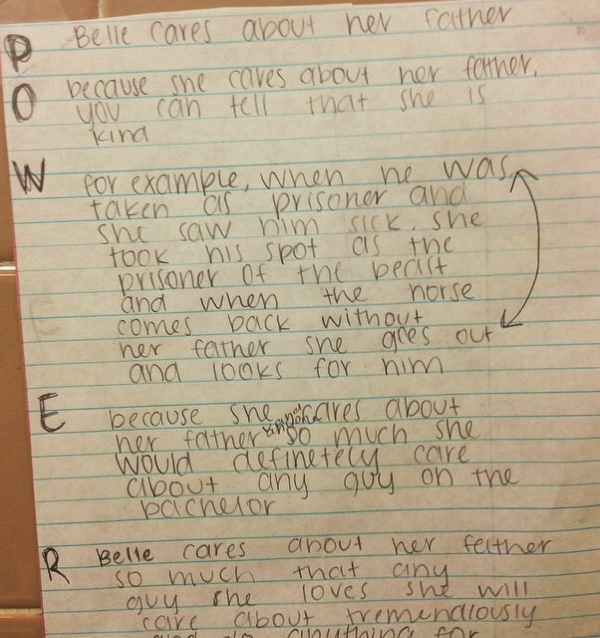 P Belle cares about her father
O because she cares about her father.
you can tell that she is
kind
W for example, when he was
taken as prisoner and
she saw him sick, she
took his spot as the
prisoner of the beast
and when the horse
comes back without
her father she goes out
and looks for him
E because she cares about
her father so much she
would definetely care
about any guy on the
bachelor
R Belle cares about her father
so much that any
guy she loves she will
care about tremendously
and do anything for